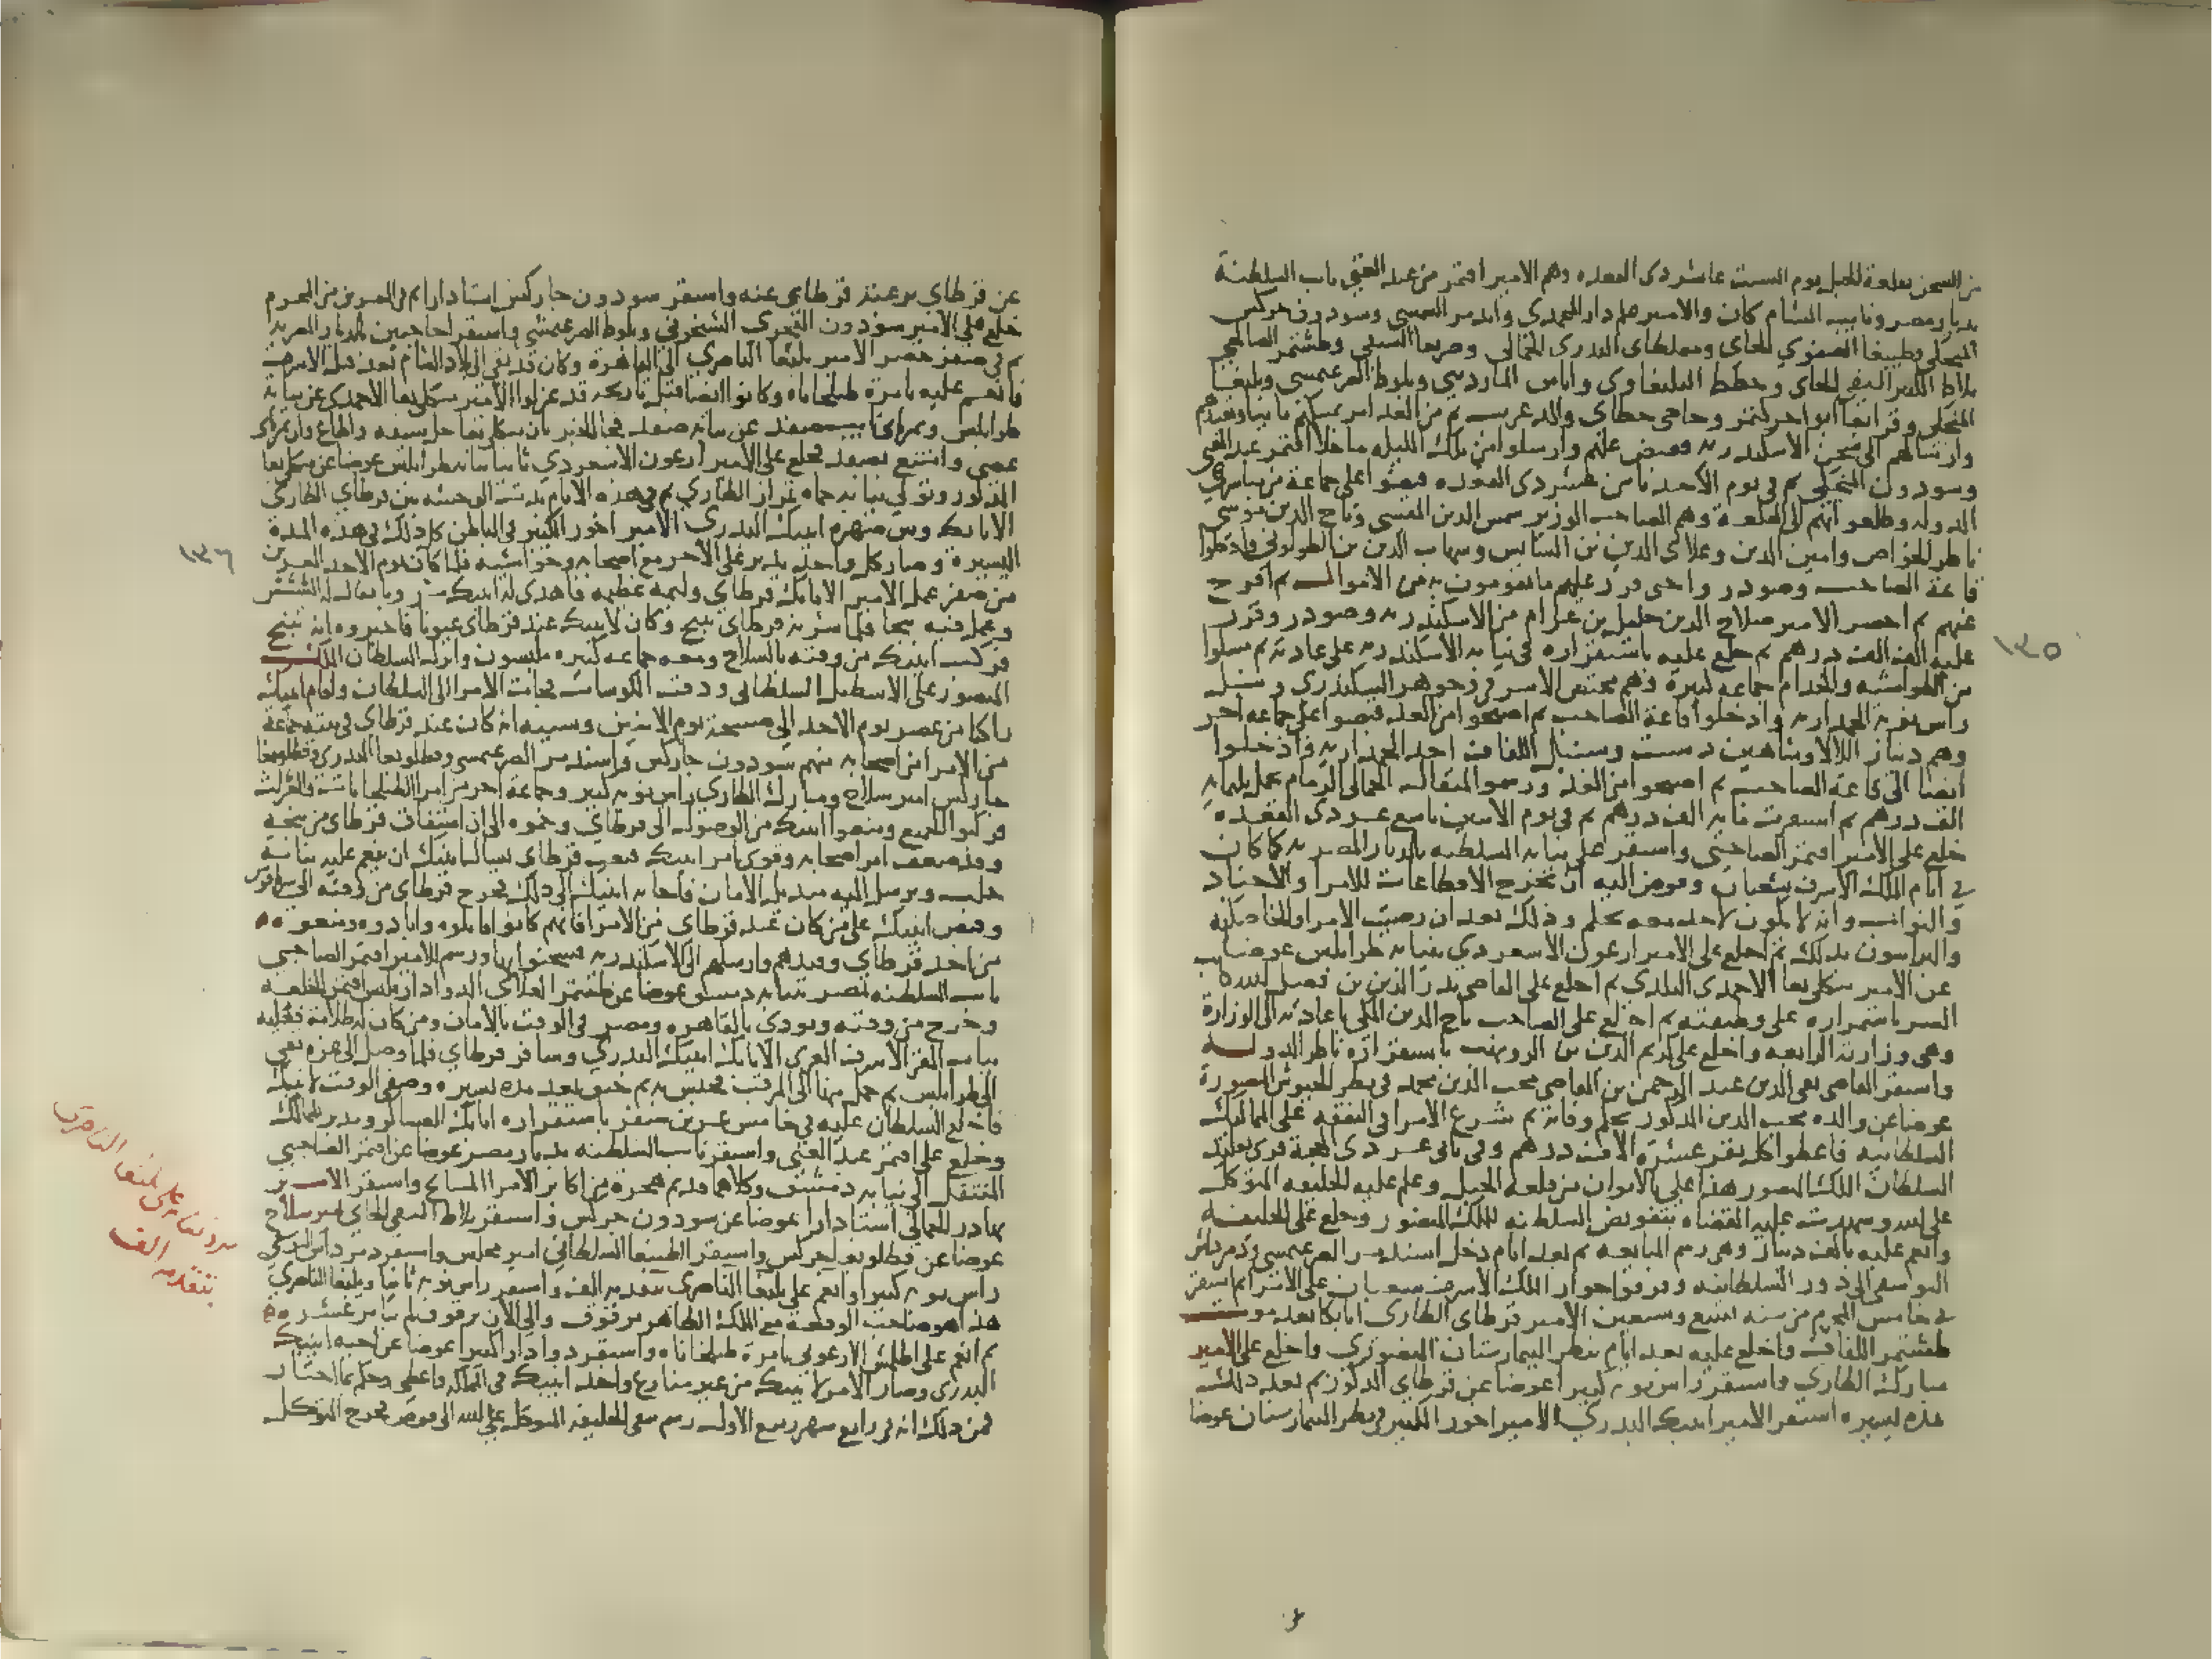 من السجن بقلعة الجبل يوم السبت عاشر ذى القعده وهم الامير اقتمر من عبد الغنى نايب السلطنة
بديار مصر ونايب الشام كان والامير علم دار المحمدي وايدمر الشمسي وسودون جركس
المنجكي وطيبغا الصفوي الجاى ومغلطاى البدري الجمالي وصربغا السيفي وطشتمر الصالحي
بلاط الكبير السيفي الجاى وحطط اليلبغاوي واياس المارديني وبلوط الصرغتمشي ويلبغا
المنجكي وقرابغا ابو جركتمر وحاجي خطاى والد غريب ثم من الغد امر بمسكهم ثانيا وتقييدهم
وارسالهم الى سجن الاسكندريه فقبض عليهم وارسلوا من تلك الليله ما خلا اقتمر عبد الغنى
وسودون المنجكي ثم في يوم الاحد ثامن عشر ذى القعده قبضوا على جماعة من مباشري
الدوله وطلعوا بهم الى القلعة وهم الصاحب الوزير شمس الدين المقسي وتاج الدين موسى
ناظر الخواص وامين الدين وعلاى الدين بن السايس وشهاب الدين بن الطولوني وادخلوا
قاعة الصاحب وصودروا حتى قرر عليهم ما يقومون به من الاموال ثم افرج
عنهم ثم احضر الامير صلاح الدين خليل بن عرام من الاسكندريه وصودر وقرر
عليه الف الف درهم ثم خلع عليه باستقراره في نيابه الاسكندريه على عادته ثم مسكوا
من الطواشيه والخدام جماعه كبيرة وهم مختص الاشرفي وجوهر السكندري وسنبل
راس نوبه الجمداريه وادخلوا قاعة الصاحب ثم اصبحوا من الغد قبضوا على جماعه اخر
وهم دينار اللالا وشاهين دست وسنبل اللفاف احد الجمداريه فادخلوا
ايضا الى قاعة الصاحب ثم اصبحوا من الغد ورسموا لمثقال الجمالي الزمام بحمل ثلثمايه
الف درهم ثم استعرت مايه الف درهم ثم في يوم الاثنين تاسع عشر ذى القعده
خلع على الامير اقتمر الصاحبي واستقر على نيابه السلطنه بالديار المصريه كما كان
في ايام الملك الاشرف شعبان وفوض اليه ان يخرج الاقطاعات للامرا والاجناد
والنواب وان لا يكون لاحد معه تحكم وذلك بعد ان رضيت الامرا والخاصكيه
والبرانيون بذلك ثم اخلع على الامير ارغون الاسعردي بنيابه طرابلس عوضا
عن الامير منكلي بغا الاحمدى البلدي ثم اخلع على القاضي بدر الدين بن فضل الله كاتب
السر باستمراره على وظيفته ثم اخلع على الصاحب تاج الدين الملكي باعادته الى الوزارة
وهي وزارته الرابعه واخلع على كريم الدين بن الرويهب باستقراره ناظر الدوله
واستقر القاضي تقي الدين عبد الرحمن بن القاضي محب الدين محمد في نظر الجيوش المنصورة
عوضا عن والده محب الدين المذكور بحكم وفاته ثم شرع الامرا في النفقه على المماليك
السلطانيه فاعطوا كل نفر عشرة الاف درهم وفي ثاني عشر ذى الحجة قرى تقليد
السلطان الملك المنصور هذا على بالايوان من قلعة الجبل وعلم عليه الخليفه المتوكل
على الله وشهدت عليه القضاه بتفويض السلطنه للملك المنصور وخلع على الخليفه
وانعم عليه بالف دينار وهي رسم المبايعه ثم بعد ايام دخل اسندمر الصرغتمشي ودمرداش
اليوسفي الى دور السلطانيه وفرقوا جوار الملك الاشرف شعبان على الامرا ثم استقر
في خامس المحرم من سنه تسع وسبعين الامير قرطاى الطازى اتابكا بعد موت
طشتمر اللفاف واخلع عليه بعد ايام بنظر البيمارستان المنصوري واخلع على الامير
مبارك الطازي واستقر راس نوبه كبيرا عوضا عن قرطاي المذكور ثم بعد ذلك
مده يسيره استقر الامير ايبك البدري الامير اخور الكبير في نظر البيمارستان عوضا
١٣٥
عن قرطاي برغبة قرطاى عنه واستقر سودون جاركس استادارا ثم في العشرين من المحرم
خلع على الامير سودون الفخرى الشيخوني وبلوط الصرغتمشي واستقرا حاجبين بالديار المصريه
ثم في صفر حضر الامير يلبغا الناصري الى القاهرة وكان قد نفي الى بلاد الشام بعد قتل الاشرف
فانعم عليه بامرة طبلخاناه وكانوا ايضا قبل تاريخه قد عزلوا الامير منكلي بغا الاحمدى عن نيابه
طرابلس وتمرباى نايب صفد عن نيابه صفد فجا الخبر بان منكلي بغا حل سيفه واطاع وان تمرباى
عصى وامتنع بصفد فخلع على الامير ارغون الاسعردي ثانيا بنيابه طرابلس عوضا عن منكلي بغا
المذكور وتولي نيابه حماه تمراز الطازي ثم في هذه الايام بدت الوحشه بين قرطاي الطازى
الاتابك وبين صهره ايبك البدرى الامير اخور الكبير في الباطن كل ذلك في هذه المدة
اليسيرة وصار كل واحد يدبر على الاخر مع اصحابه وحواشيه فلما كان يوم الاحد العشرين
من صفر عمل الامير الاتابك قرطاي وليمة عظيمة فاهدى له ايبك مشروبا يقال له الششش
وعمل فيه بنجا فلما شربه قرطاى تبنج وكان لايبك عند قرطاى عيونا فاخبروه انه تبنج
فركب ايبك من وقته بالسلاح ومعه جماعه كبيره ملبسون وانزل السلطان الملك
المنصور على الاسطبل السلطاني ودقت الكوسات فجات الامرا الى السلطان واقام ايبك
راكبا من عصر يوم الاحد الى صبيحة يوم الاثنين وسببه انه كان عند قرطاى في بيته جماعة
من الامرا من اصحابه منهم سودون جاركس واسندمر الصرغتمشي وقطلوبغا البدري وقطلوبغا
جاركس امير سلاح ومبارك الطازى راس نوبه كبير وجماعة اخر من امرا الطبلخانات والعشرات
فركبوا الجميع ومنعوا ايبك من الوصول الى قرطاي وحموه الى ان استفاق قرطاى من بنجه
وقد ضعف امر اصحابه وقوى امر ايبك فبعث قرطاى يسال ايبك ان ينعم عليه بنيابة
حلب ويرسل اليه منديل الامان فاجابه ايبك الى ذلك فخرج قرطاى من وقته الى سرياقوس
وقبض ايبك على من كان عند قرطاي من الامرا فانهم كانوا قاتلوه وابادوه ومنعوه
من اخذ قرطاي وقيدهم وارسلهم الى الاسكندريه فسجنوا بها ورسم للامير اقتمر الصاحبي
نايب السلطنه بمصر بنيابه دمشق عوضا عن طشتمر العلاي الدوادار ولبس اقتمر الخلعه
وخرج من وقته ونودي بالقاهره ومصر في الوقت بالامان ومن كان له ظلامة فعليه
بباب المقر الاشرف العزى الاتابك ايبك البدري وسافر قرطاي فلما وصل الى غزه نفي
الى طرابلس ثم حمل منها الى المرقب فحبس به ثم خنق بعد مده يسيره وصفى الوقت لايبك
فاخلع السلطان عليه في خامس عشرين صفر باستقراره اتابك العساكر ومدبر الممالك
وخلع على اقتمر عبد الغنى واستقر نايب السلطنه بديار مصر عوضا عن اقتمر الصاحبي
المنتقل الى نيابه دمشق وكلاهما قديم هجرة من اكابر الامرا المشايخ واستقر الامير
بهادر الجمالي استادارا عوضا عن سودون جركس واستقر بلاط السيفي الجاى امير سلاح
عوضا عن قطلوبغا جركس واستقر الطنبغا السلطاني امير مجلس واستقر دمرداش اليوسفي
راس نوبه كبيرا وانعم على يلبغا الناصرى بتقدمه الف واستقر راس نوبه ثانيا ويلبغا الناصري
هذا هو صاحب الوقعه مع الملك الظاهر برقوق والى الان برقوق لم يتامر عشره
ثم انعم على اطلمش الارغوني بامرة طبلخاناه واستقر دوادارا كبيرا عوضا عن اخيه ايبك
البدري وصار الامر لايبك من غير منازع واخذ ايبك في المملكه فاعطى وحكم بما اختار
فمن ذلك انه في رابع شهر ربيع الاول رسم بنفى الخليفه المتوكل على الله الى قوص فخرج المتوكل
١٣٦
يلبغا الناصرى
بتقدمه الف